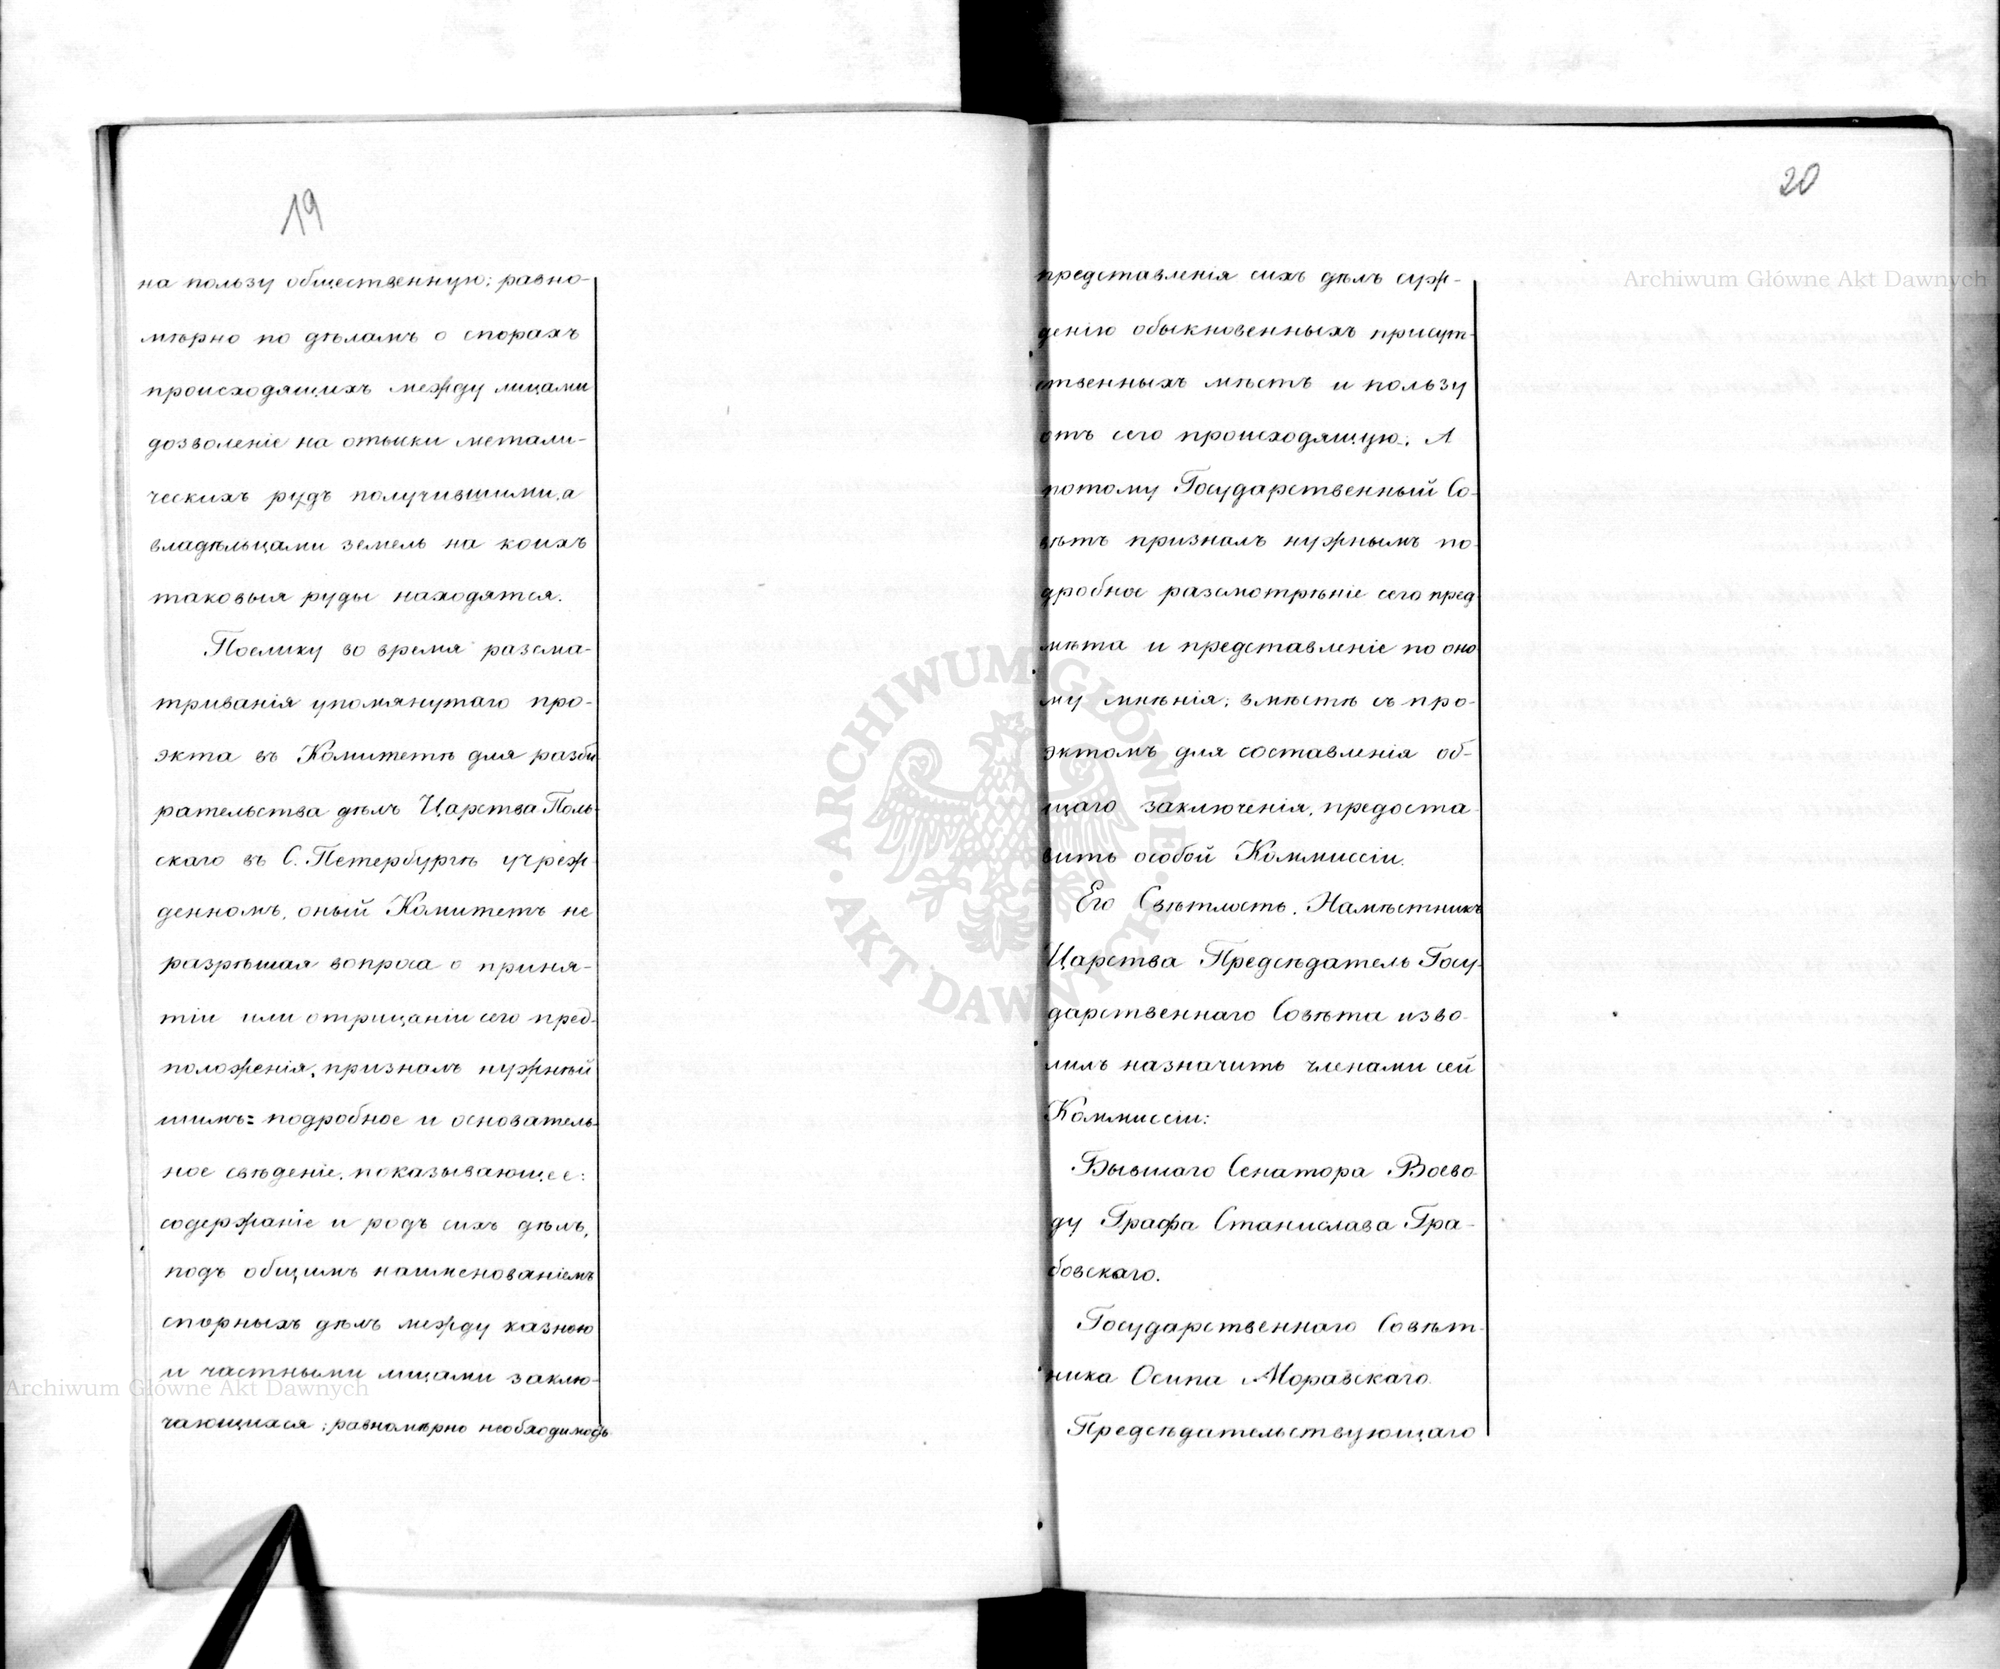 19
на пользу общественную; равно-
мѣрно по дѣламъ о спорахъ
происходящихъ между лицами
дозволеніе на отыски метали-
ческихъ рудъ получившими, а
владѣльцами земель на коихъ
таковыя руды находятся.
Поелику во время разсма-
триванія упомянутаго про-
экта въ Комитетѣ для разби-
рательства дѣлъ Царства Поль-
скаго въ С. Петербургѣ учреж-
денномъ, оный Комитетъ не
разрѣшая вопроса о приня-
тіи или отрицаніи сего пред-
положенія, призналъ нужнѣй
шимъ= подробное и основатель-
ное свѣденіе, показывающее:
содержаніе и родъ сихъ дѣлъ,
подъ общимъ наименованіемъ
спорныхъ дѣлъ между казною
и частными лицами заклю-
чающихся; равномѣрно необходимость
20
представленія сихъ дѣлъ суж-
денію обыкновенныхъ присут-
ственныхъ мѣстъ и пользу
отъ сего происходящую. А
потому Государственный Со-
вѣтъ призналъ нужнымъ по-
дробное разсмотрѣніе сего пред
мѣта и представленіе по оно
му мнѣнія; вмѣстѣ съ про-
эктомъ для составленія об-
щаго заключенія, предоста-
вить особой Коммиссіи.
Его Свѣтлость, Намѣстникъ
Царства Предсѣдатель Госу-
дарственнаго Совѣта изво-
лилъ назначить членами сей
Коммиссіи:
Бывшаго Сенатора Воево-
ду Графа Станислава Гра-
бовскаго.
Государственнаго Совѣт-
ника Осипа Моравскаго.
Предсѣдательствующаго
Archiwum Główne Akt Dawnych
Archiwum Główne Akt Dawnych
ARCHIWUM GŁÓWNE AKT DAWNYCH